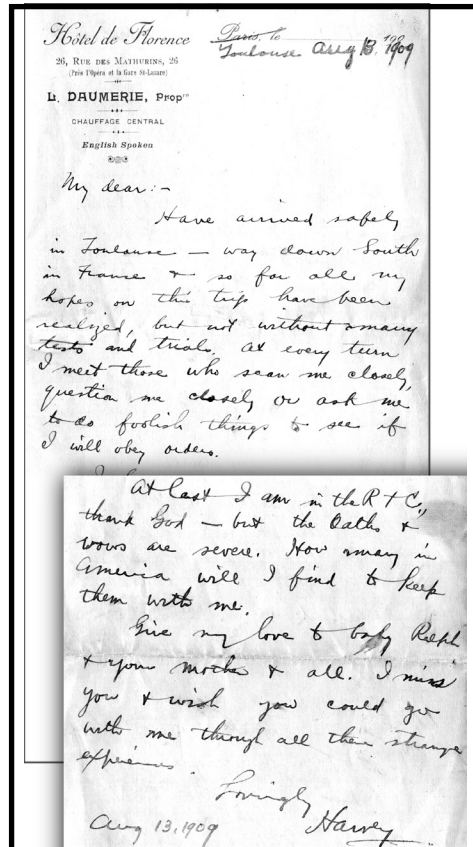 Hôtel de Florence
26, RUE DES MATHURINS, 26
(Près l'Opéra et la Gare St-Lazare)
L. DAUMERIE, Propre
CHAUFFAGE CENTRAL
English Spoken
Paris, le 190
Toulouse Aug 13, 1909
My dear:-
Have arrived safely
in Toulouse — way down South
in France & so far all my
hopes on this trip have been
realized, but not without many
tests and trials. At every turn
I meet those who scan me closely,
question me closely or ask me
to do foolish things to see if
I will obey orders.
At last I am in the R + C.,
thank God — but the Oaths &
vows are severe. How many in
America will I find to keep
them with me.
Give my love to baby Ralph
& your mother & all. I miss
you & wish you could go
with me through all these strange
experiences.
Lovingly
Harvey
Aug 13, 1909